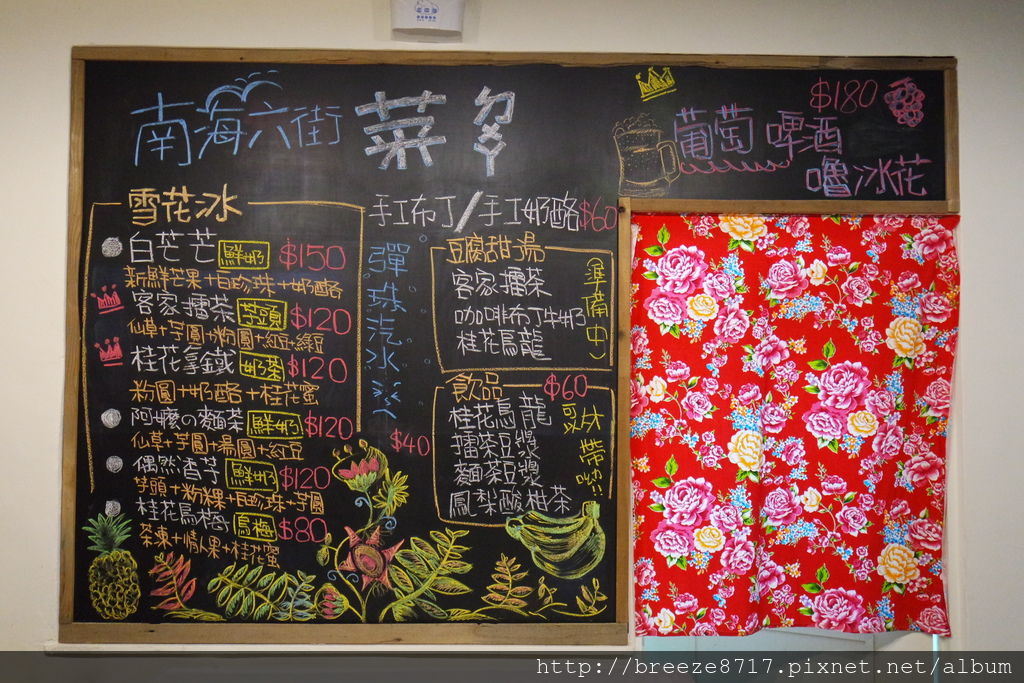 南海六街 菜ㄉㄢ
$180
葡萄啤酒
嚕冰花
雪花冰
白芒芒 鮮奶 $150
新鮮芒果+白珍珠+奶酪
客家擂茶 芋頭 $120
仙草+芋圓+粉圓+紅豆+綠豆
桂花拿鐵 奶茶 $120
粉圓+奶酪+桂花蜜
阿嬤の麵茶 鮮奶 $120
仙草+芋圓+湯圓+紅豆
偶然香芋 鮮奶 $120
芋頭+粉粿+白珍珠+芋圓
桂花烏梅 烏梅 $80
茶凍+情人果+桂花蜜
手工布丁/手工奶酪 $60
彈珠汽水
$40
豆腐甜湯
準備中
客家擂茶
咖啡布丁牛奶
桂花烏龍
飲品 $60
可外帶呦!!
桂花烏龍
擂茶豆漿
麵茶豆漿
鳳梨酸柑茶
http://breeze8717.pixnet.net/album